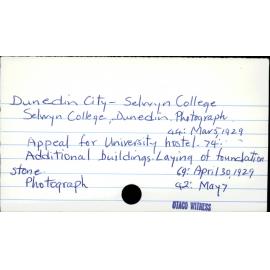 Dunedin City - Selwyn College
Selwyn College, Dunedin. Photograph
44: Mar 5, 1929
Appeal for University hostel. 74:
Additional buildings. Laying of foundation
stone 69: April 30, 1929
Photograph 42: May 7
OTAGO WITNESS